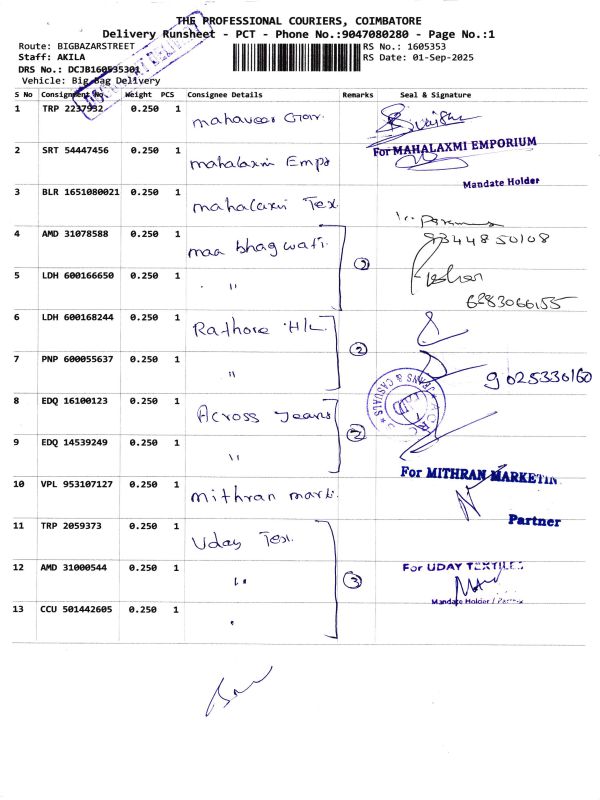 THE PROFESSIONAL COURIERS, COIMBATORE
Delivery Runsheet - PCT - Phone No.:9047080280 - Page No.:1
Route: BIGBAZARSTREET
RS No.: 1605353
Staff: AKILA
RS Date: 01-Sep-2025
DRS No.: DCJB160535301
Vehicle: Big Bag Delivery
S No Consignment No. Weight PCS Consignee Details Remarks Seal & Signature
1 TRP 2237932 0.250 1 mahaveer Gar.
2 SRT 54447456 0.250 1 mahalaxmi Emp
For MAHALAXMI EMPORIUM
Mandate Holder
3 BLR 1651080021 0.250 1 mahalaxmi Tex.
4 AMD 31078588 0.250 1 maa bhagwati
2
9344850108
5 LDH 600166650 0.250 1 "
6283066155
6 LDH 600168244 0.250 1 Rathore H/L
2
7 PNP 600055637 0.250 1 "
9025330160
8 EDQ 16100123 0.250 1 Across Jeans
JEANS & CASUALS
2
9 EDQ 14539249 0.250 1 "
For MITHRAN MARKETIN
10 VPL 953107127 0.250 1 mithran mark.
Partner
11 TRP 2059373 0.250 1 Uday Tex.
12 AMD 31000544 0.250 1 "
3
For UDAY TEXTILES
Mandate Holder / Partner
13 CCU 501442605 0.250 1 "